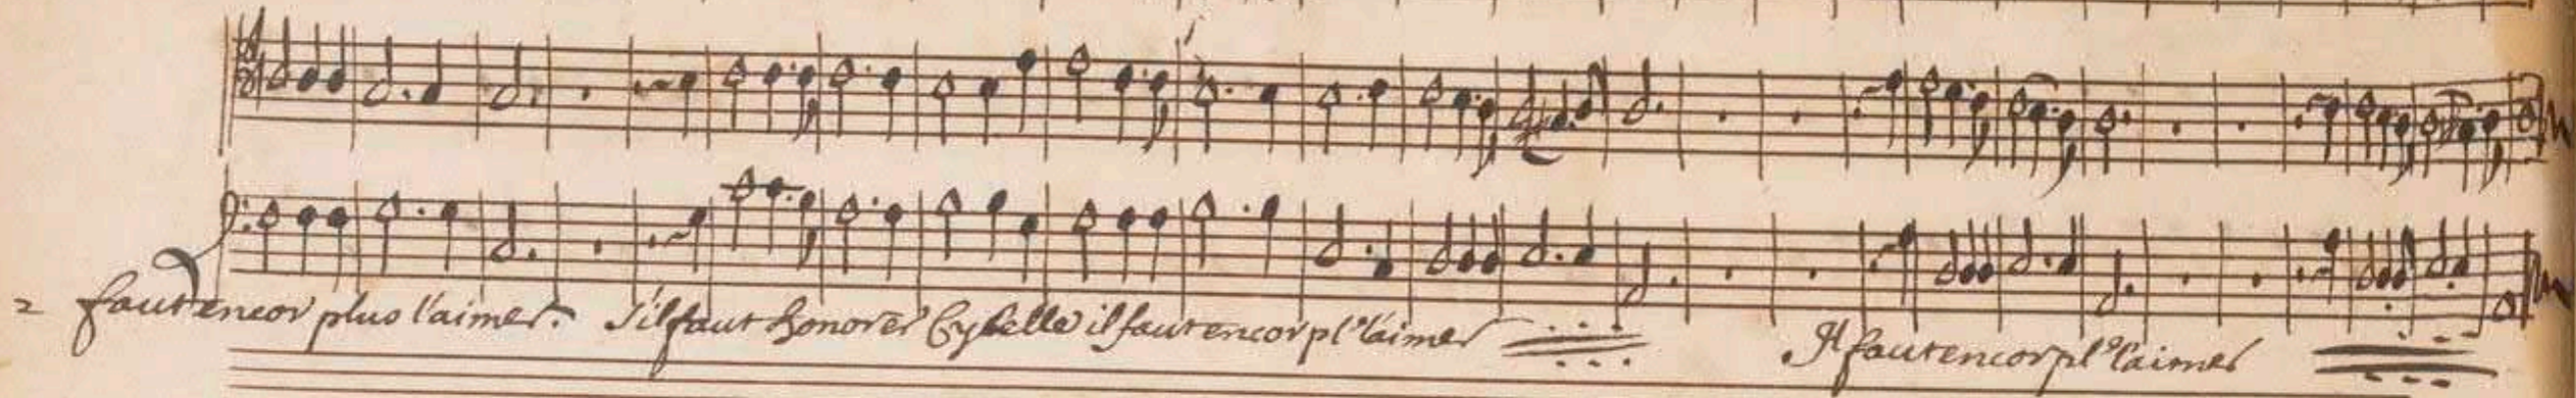 faut encor plus l'aimer. S'il faut honorer Cybelle il faut encor pl.s l'aimer Il faut encor pl.s l'aimer